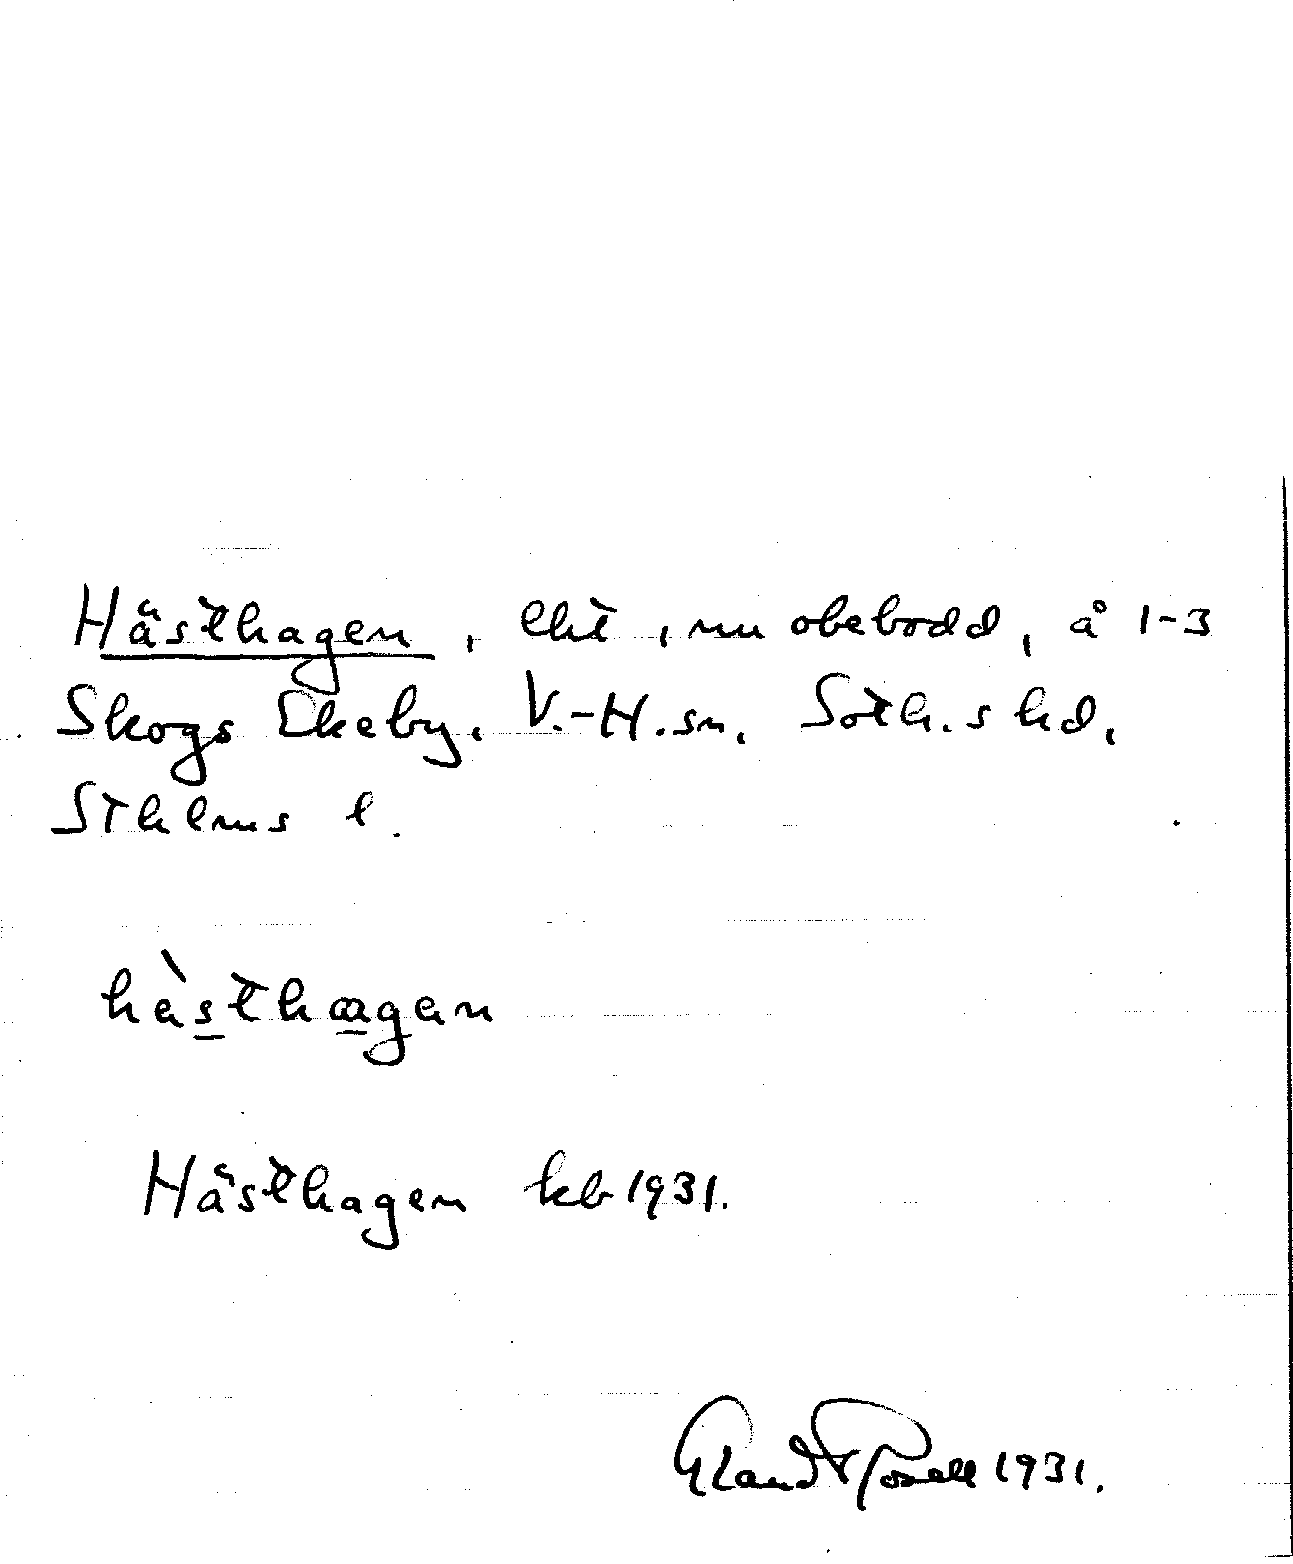 Hästhagen, lht, nu obebodd, å 1-3
Skogs Ekeby. V.-H. sn. Soth.s hd.
Sthlms l.
hàsthagen
Hästhagen kb 1931.
1931.